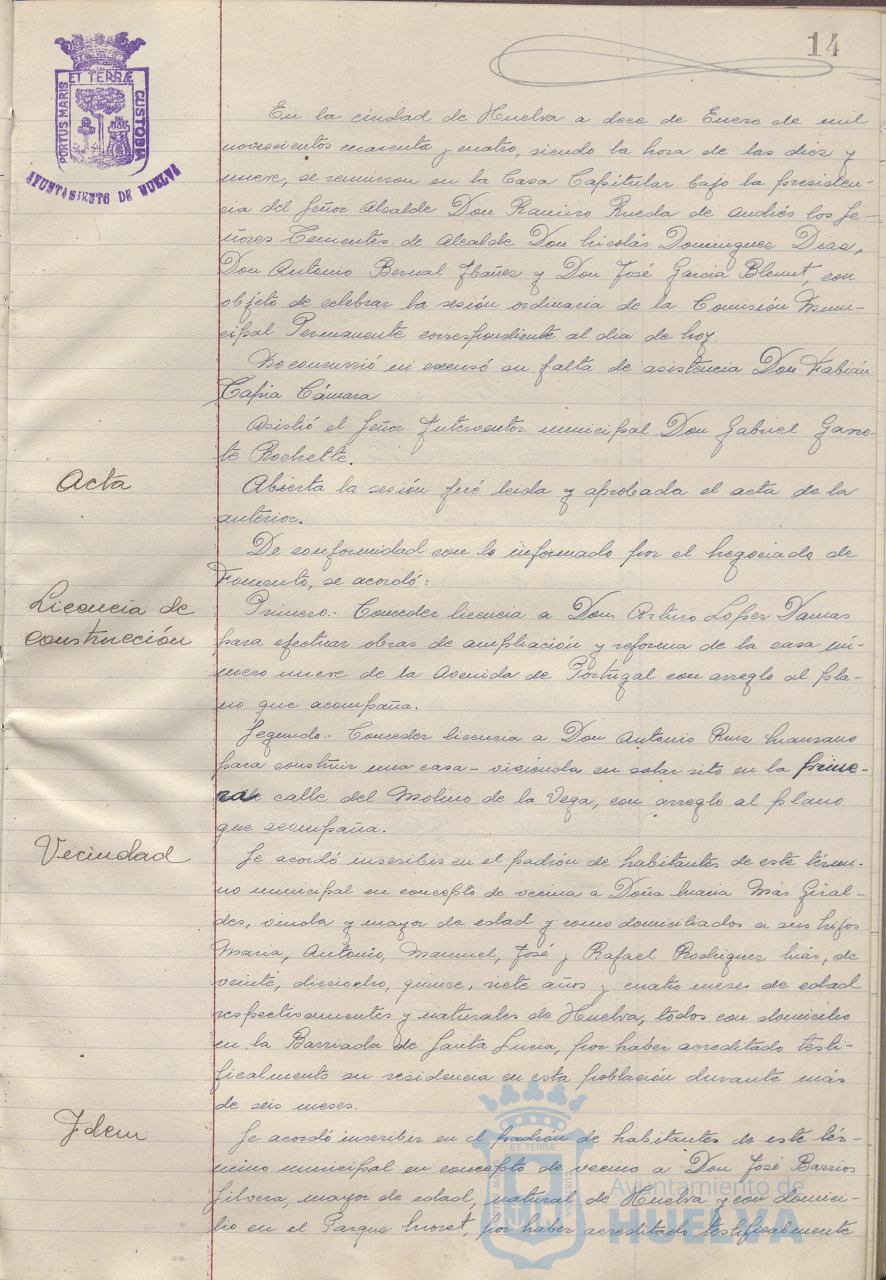 14
PORTUS MARIS ET TERRÆ CUSTODIA
AYUNTAMIENTO DE HUELVA
En la ciudad de Huelva a doce de Enero de mil
novecientos cuarenta y cuatro, siendo la hora de las diez y
nueve, se reunieron en la Casa Capitular bajo la presiden-
cia del Señor Alcalde Don Ramiro Rueda de Andrés los Se-
ñores Tenientes de Alcalde Don Nicolás Dominguez Diaz,
Don Antonio Bernal Ibáñez y Don José Garcia Blanut, con
objeto de celebrar la sesión ordinaria de la Comisión Muni-
cipal Permanente correspondiente al dia de hoy.
No concurrió ni excusó su falta de asistencia Don Fabián
Tapia Cámara
Asistió el Señor Interventor municipal Don Gabriel Garro-
te Rochette.
Acta
Abierta la sesión fué leida y aprobada el acta de la
anterior.
De conformidad con lo informado por el Negociado de
Fomento, se acordó:
Licencia de
construcción
Primero- Conceder licencia a Don Arturo López Damas
para efectuar obras de ampliación y reforma de la casa nú-
mero nueve de la Avenida de Portugal con arreglo al pla-
no que acompaña.
Segundo- Conceder licencia a Don Antonio Ruiz Manzano
para construir una casa-vivienda en solar sito en la prime-
ra calle del Molino de la Vega, con arreglo al plano
que acompaña.
Vecindad
Se acordó inscribir en el padrón de habitantes de este térmi-
no municipal en concepto de vecina a Doña Maria Más Giral-
des, viuda y mayor de edad y como domiciliados a sus hijos
Maria, Antonio, Manuel, José y Rafael Rodriguez Más, de
veinte, dieciocho, quince, siete años y cuatro meses de edad
respectivamentes y naturales de Huelva, todos con domicilio
en la Barriada de Santa Lucia, por haber acreditado testi-
ficalmente su residencia en esta población durante más
de seis meses.
Idem
Se acordó inscribir en el padrón de habitantes de este tér-
mino municipal en concepto de vecino a Don José Barrios
Silvera, mayor de edad, natural de Huelva y con domici-
lio en el Parque Moret, por haber acreditado testificalmente
Ayuntamiento de
HUELVA